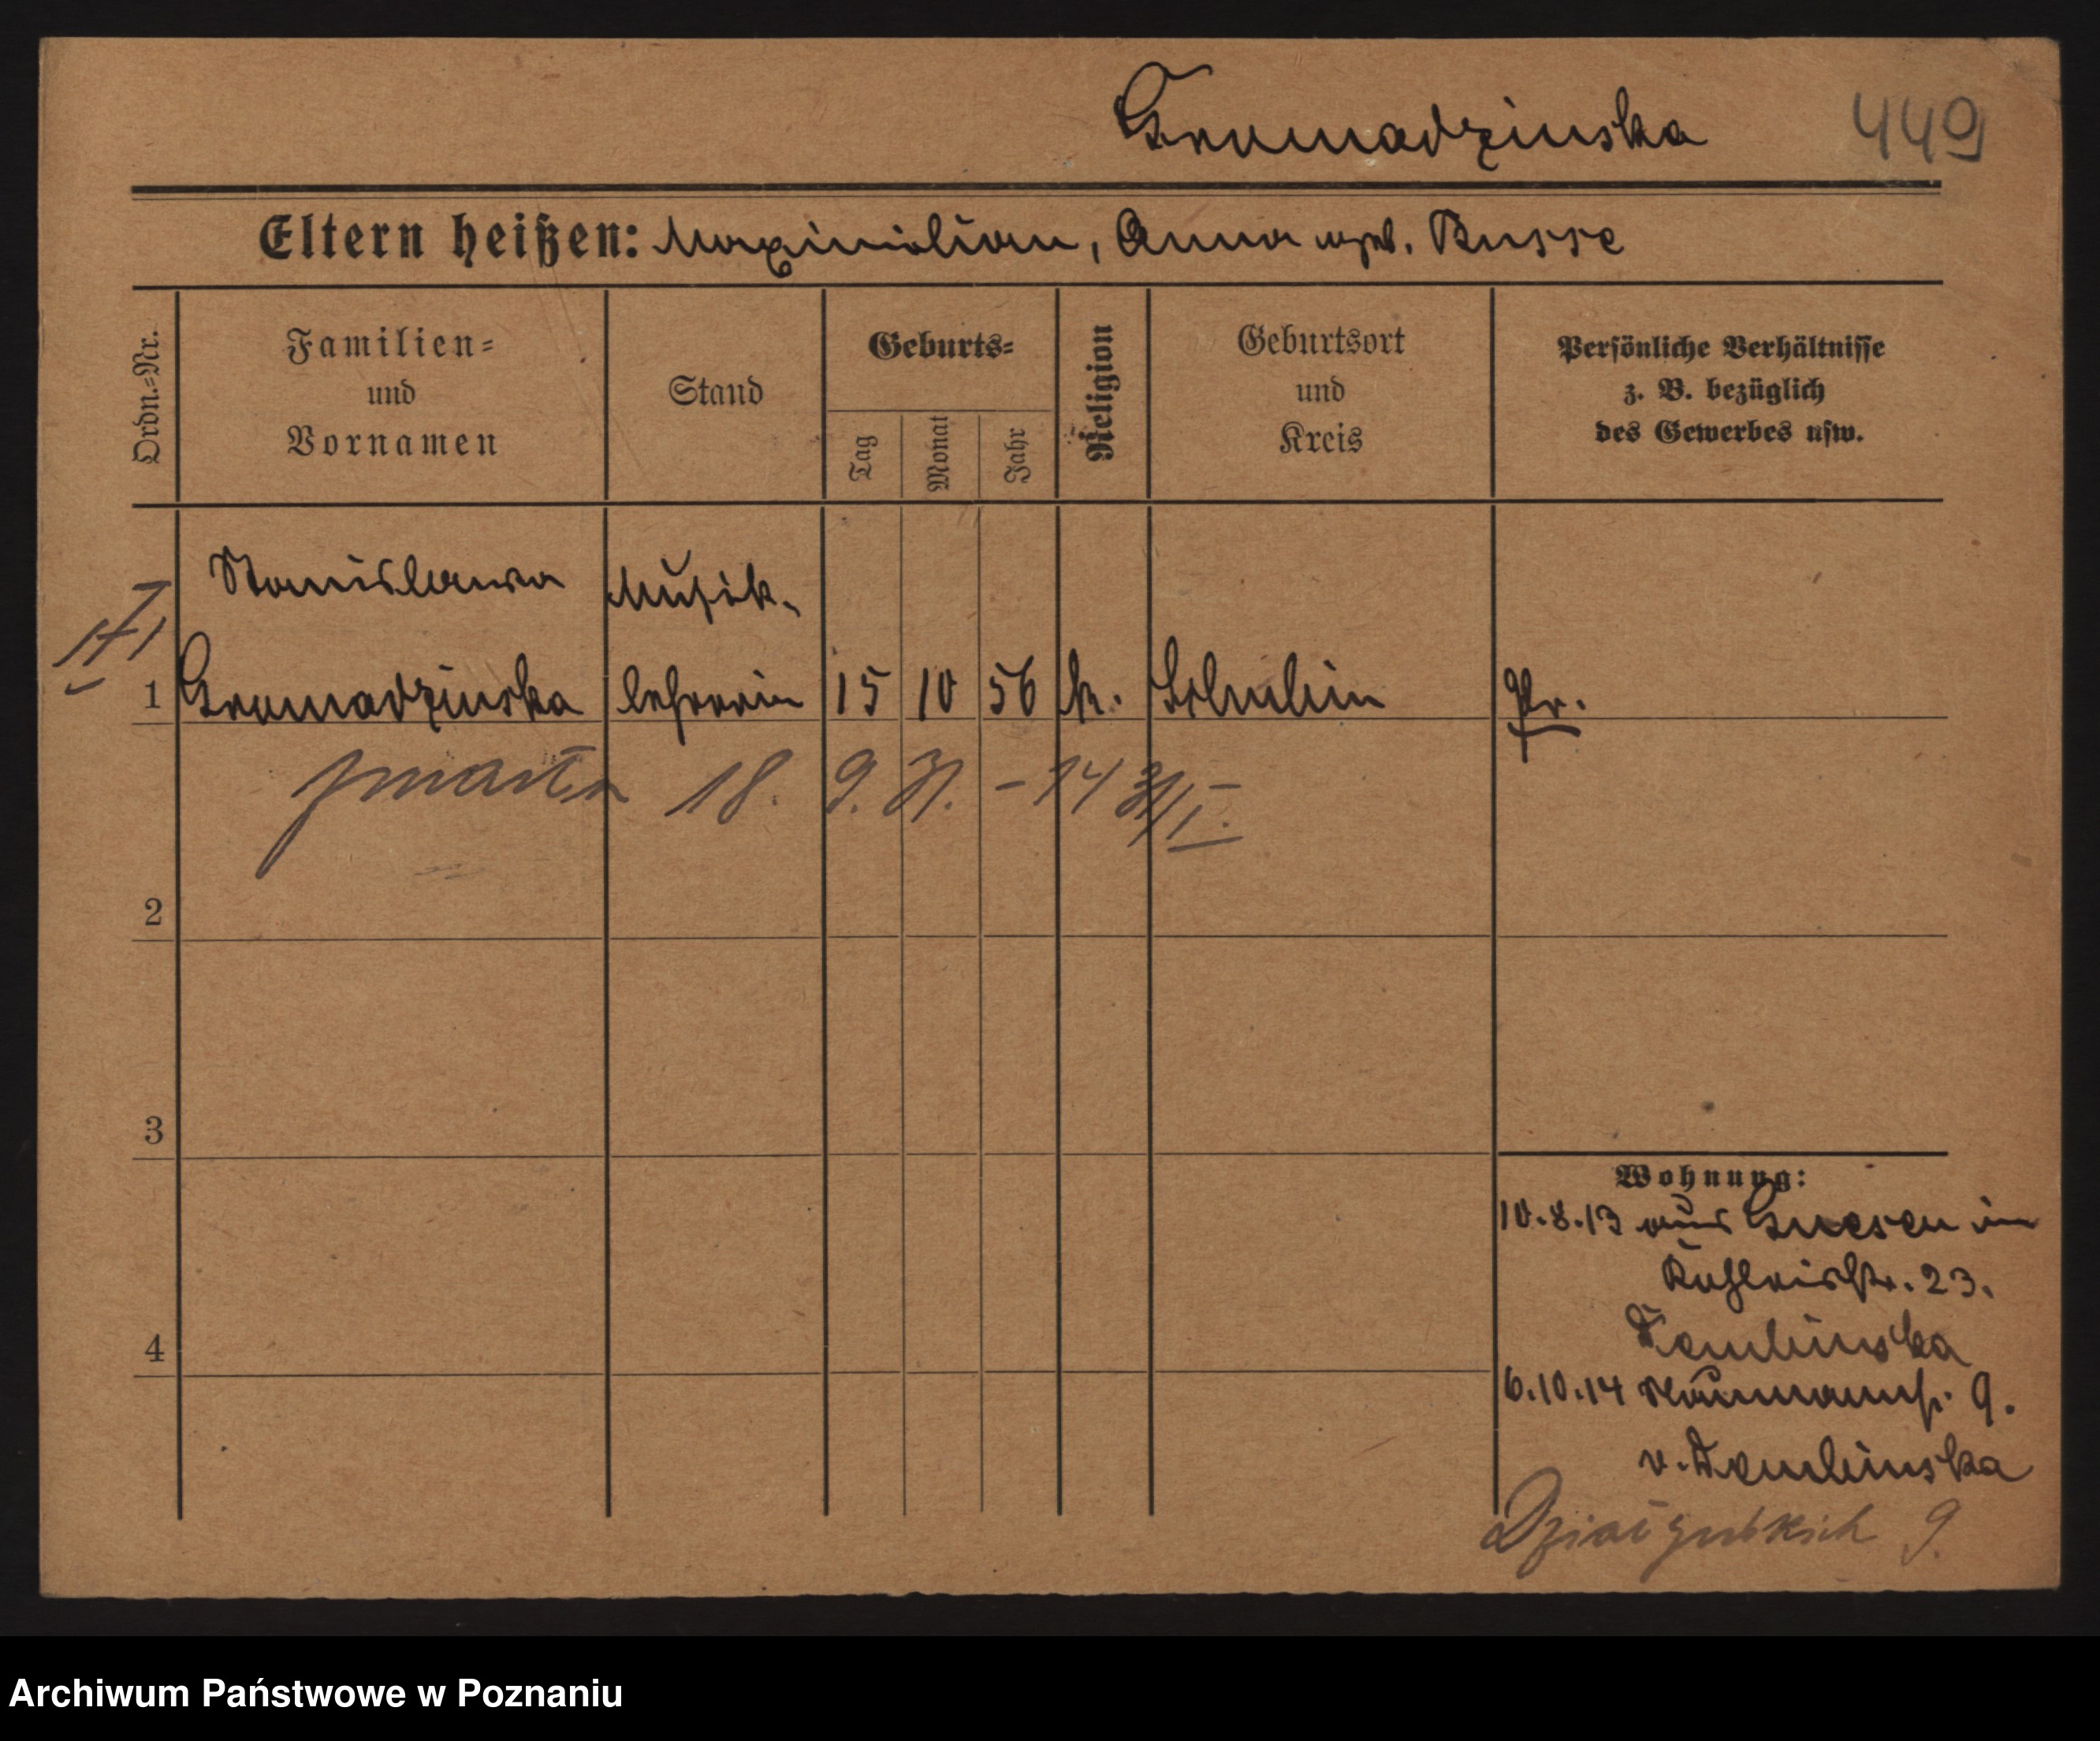 Gromadzinska 449
Eltern heißen: Maximilian, Anna geb. Busse
Ordn.=Nr.
Familien=
und
Vornamen
Stand
Geburts=
Tag
Monat
Jahr
Religion
Geburtsort
und
Kreis
Persönliche Verhältnisse
z. B. bezüglich
des Gewerbes usw.
Stanislawa Musik-
1 Gromadzinska lehrerin 15 10 56 k. Schubin Pr.
zmarła 18. 9. 31. - 14
2
3
4
Wohnung:
10.8.13 aus Gnesen in
23.
Dembinska
6.10.14 Naumannstr. 9.
v. Dembinska
Działyńskich 9.
Archiwum Państwowe w Poznaniu